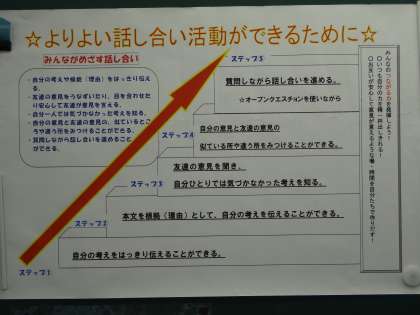 ☆よりよい話し合い活動ができるために☆
みんながめざす話し合い
・自分の考えや根拠（理由）をはっきり伝える。
・友達の意見をうなずいたり、目を合わせたり安心して友達が意見を言える。
・自分一人では気づかなかった考えを知る。
・自分の意見と友達の意見の、似ているところや違う所をみつけることができる。
・質問しながら話し合いを進めることができる。
ステップ5
質問しながら話し合いを進める。
☆オープンクエスチョンを使いながら
ステップ4
自分の意見と友達の意見の
似ている所や違う所をみつけることができる。
ステップ3
友達の意見を聞き、
自分ひとりでは気づかなかった考えを知る。
ステップ2
本文を根拠（理由）として、自分の考えを伝えることができる。
ステップ1
自分の考えをはっきり伝えることができる。
みんなのつながる力を発揮しよう！
〇いつも自分の力を精一杯出しきれる！
〇お互いが安心して意見が言えるような場・時間を自分たちで作りだす！